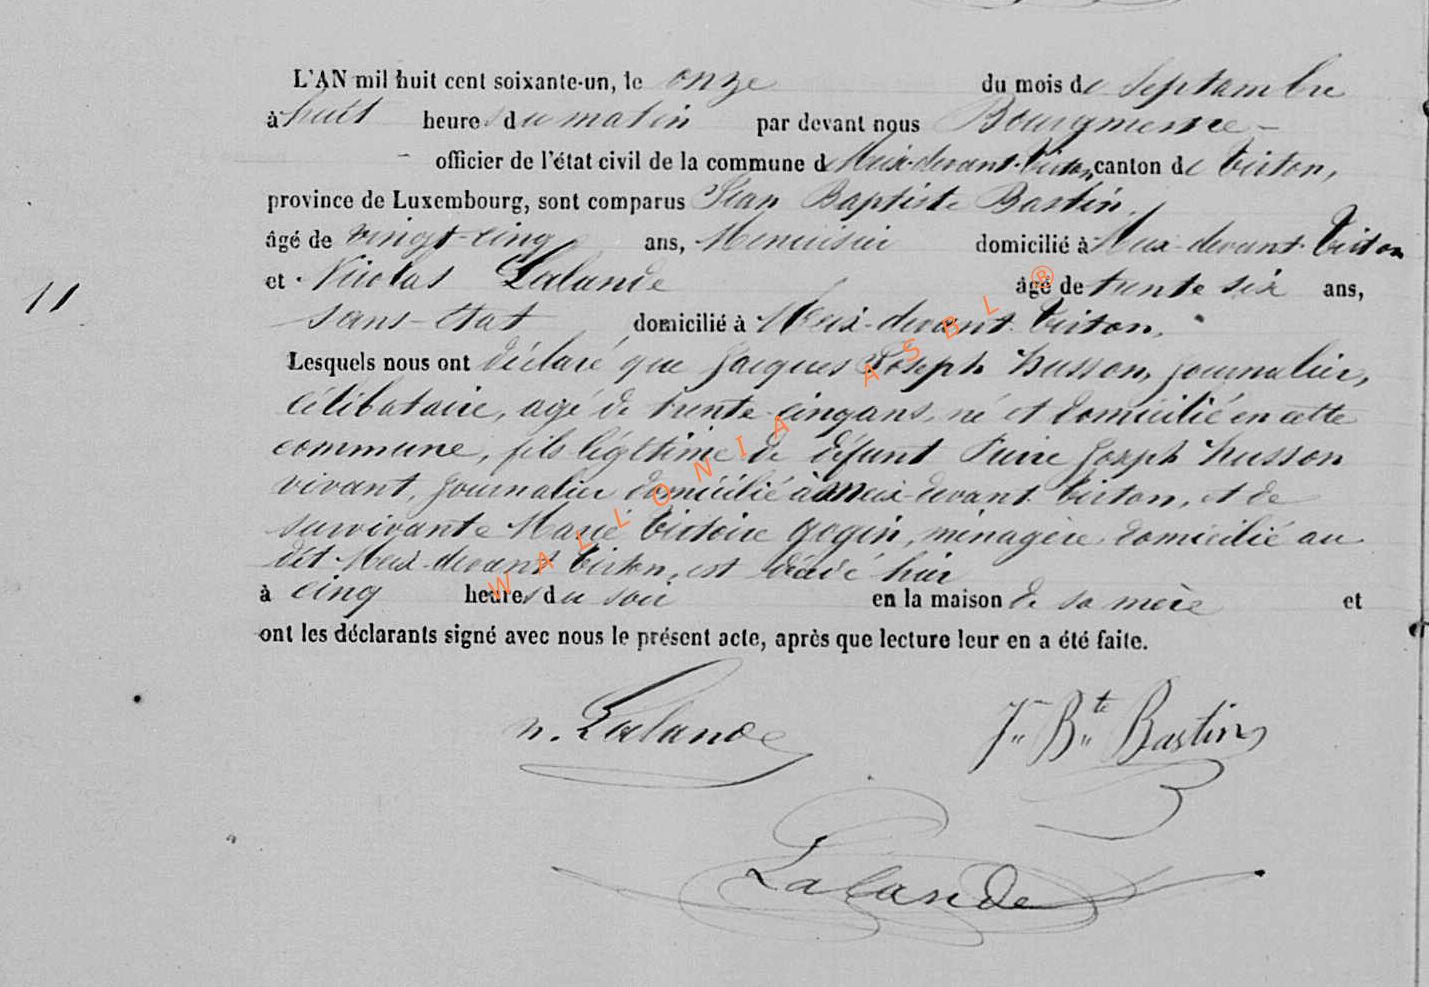 L'AN mil huit cent soixante-un, le onze du mois de Septembre
à huit heures du matin par devant nous Bourgmestre -
- officier de l'état civil de la commune de Meix-devant-Virton, canton de Virton,
province de Luxembourg, sont comparus Jean Baptiste Bastin,
âgé de vingt-cinq ans, Menuisier domicilié à Meix-devant-Virton
et Nicolas Lalande âgé de trente six ans,
11
sans-état domicilié à Meix-devant-Virton.
Lesquels nous ont déclaré que Jacques Joseph Husson, journalier,
célibataire, agé de trente-cinq ans, né et domicilié en cette
commune, fils légitime de défunt Pierre Joseph Husson
vivant, journalier domicilié à Meix-devant Virton, et de
survivante Marie Victoire Gogin, ménagère domicilié au
dit Meix-devant Virton, est décédé hier
à cinq heures du soir en la maison de sa mère et
ont les déclarants signé avec nous le présent acte, après que lecture leur en a été faite.
n. Lalande J.n B.te Bastin
Lalande
WALLONIA ASBL ®